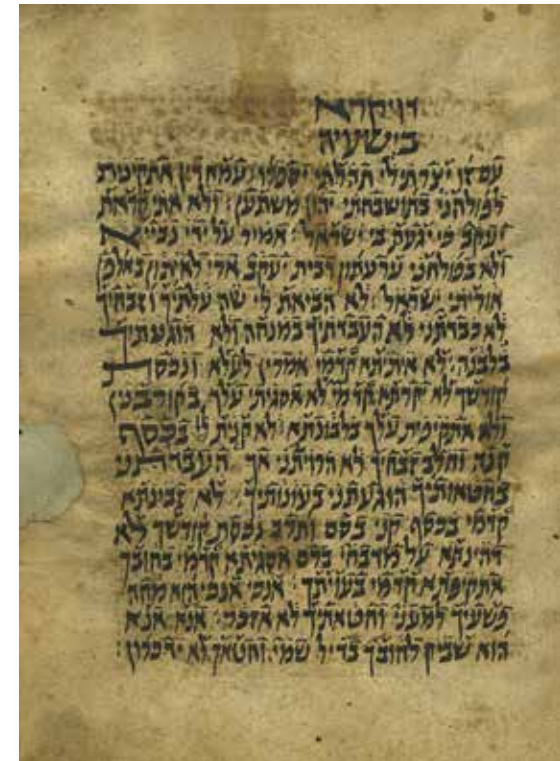 ויקרא
בישעיה
עם זו יצרתי לי תהלתי יספרו: עמא דין אתקינית
לפולחני בתושבחתי יהון משתען: ולא אתי קראת
יעקב כי יגעת בי ישראל: אמיר על ידי נבייא
ולא בפולחני ערעתון דבית יעקב ארי לאיתון באולפן
אוריתי ישראל: לא הביאת לי שה עלתיך וזבחיך
לא כבדתני לא העבדתיך במנחה ולא הוגעתיך
בלבנה: לא איתיתא קדמי אמרין לעלא ונכסת
קודשך לא יקרתא קדמי לא אסגיתי עלך בקורבנין
ולא אתקיפית עלך בלבונתא: לא קנית לי בכסף
קנה וחלב זבחיך לא הרויתני אך העבדתני
בחטאותיך הוגעתני בעונותיך: לא זבינתא
קדמי בכסף קני בסם ותרב נכסת קודשך לא
דהינתא על מדבחי ברם אסגיתא קדמי בחובך
אתקיפתא קדמי בעויתך: אנכי אנכי הוא מחה
פשעיך למעני וחטאתיך לא אזכר: אנא אנא
הוא שביק לחובך בדיל שמי וחטאך לא ידכרון: